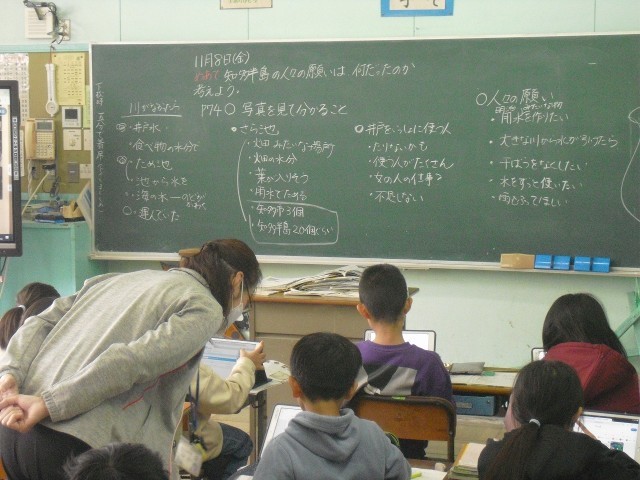 11月8日(金)
めあて 知多半島の人々の願いは 何だったのか
考えよう。
P74〇 写真を見て分かること
川がなかったら
井戸水
食べ物の水分で
ため池
池から水を
海の水→のどが
かわく
運んでいた
〇さら池
・火田みたいな場所
・火田の水分
・葉が入りそう
・雨水でためる
・知多市3個
・知多半島20個くらい
〇井戸をいっしょに使う人
・たりないかも
・使う人がたくさん
・女の人の仕事?
・不足しない
〇人々の願い
用水を作りたい
・大きな川から水が引いたら
・干ばつをなくしたい
・水をずっと使いたい
・雨ふってほしい